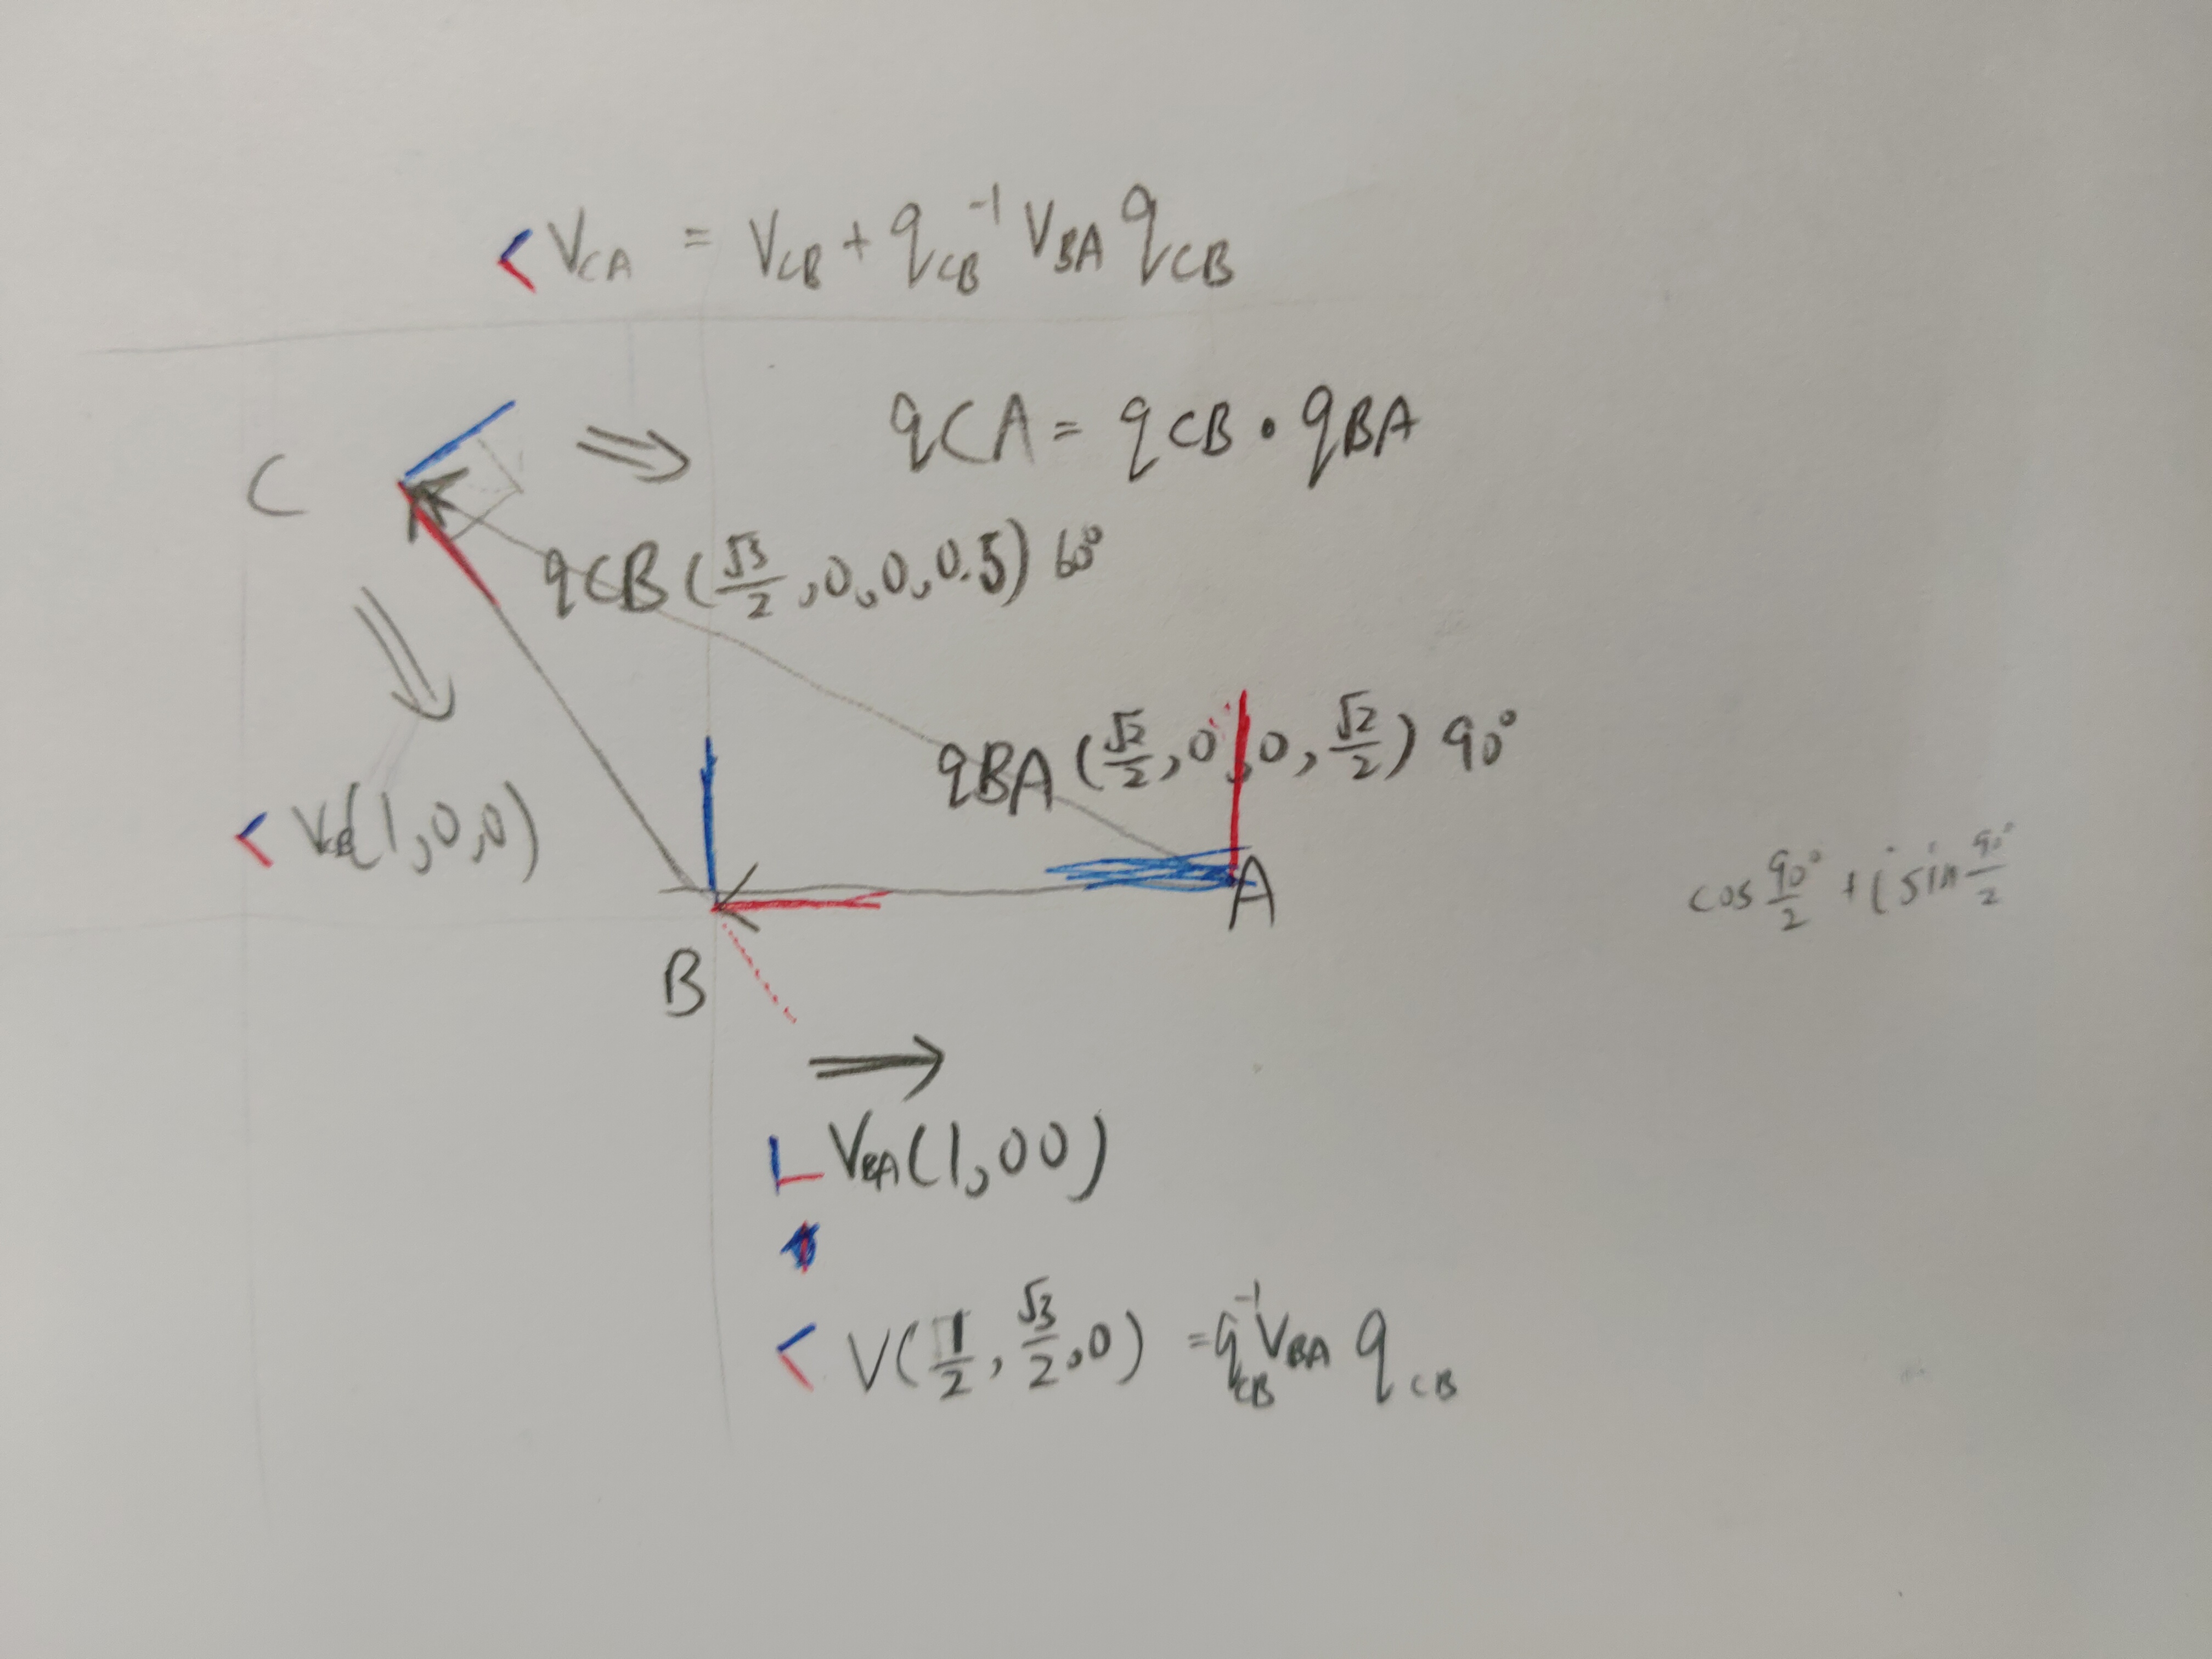 V_CA = V_CB + q_CB^-1 V_BA q_CB
qCA = qCB • qBA
C
qCB (√3/2, 0, 0, 0.5) 60°
qBA (√2/2, 0, 0, √2/2) 90°
V_CB(1, 0, 0)
A
cos 90°/2 + i sin 90°/2
B
V_BA(1, 0 0)
V(1/2, √3/2, 0) = q_CB^-1 V_BA q_CB